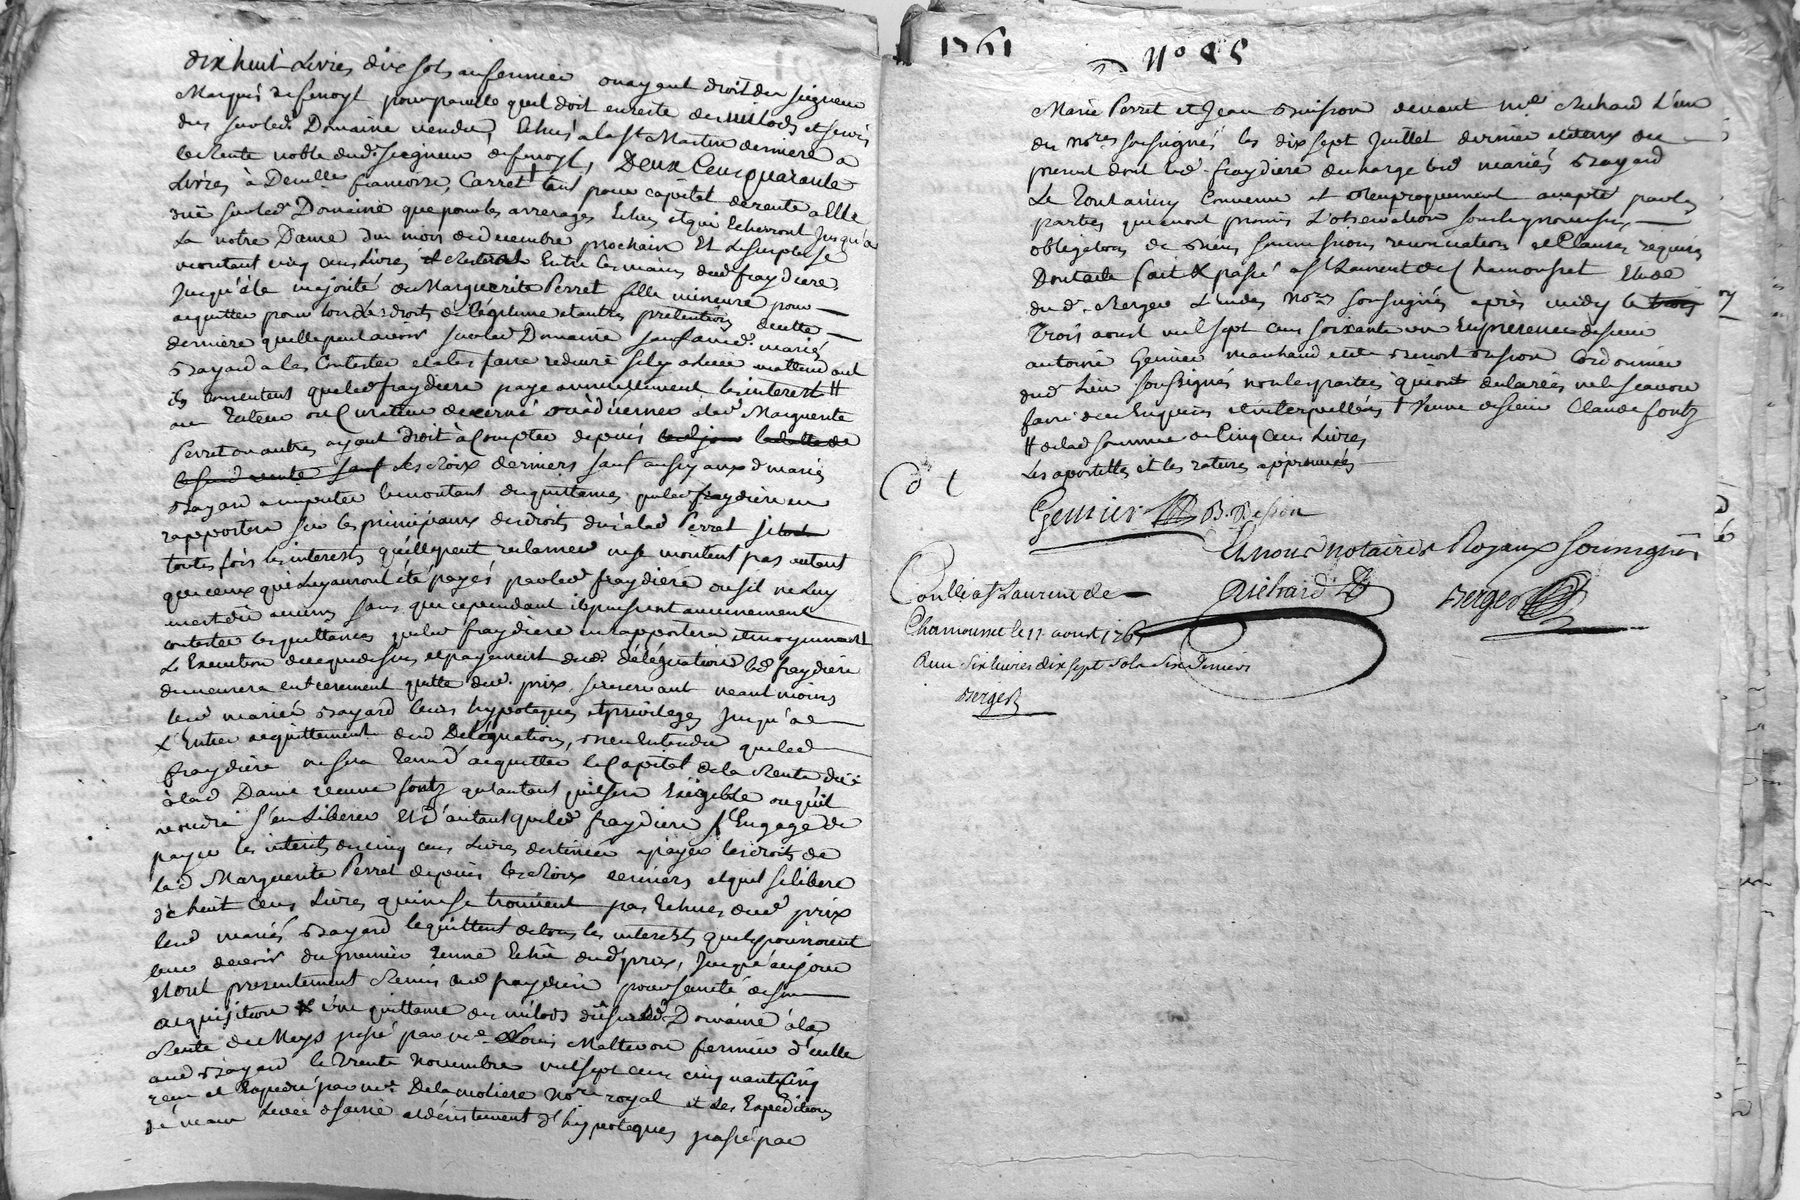 dix huit Livres dix sols au fermier ou ayant droit du seigneur
Marquis de fenoyl pour parcelle quil doit en reste de milods et servis
dus sur led. Domaine vendu, Echus a la St Martin derniere a
la Rente noble dud. seigneur de fenoyl, Deux Cens quarante
Livres à Demlle francoise Carret † tant pour capital de rente a Elle
duë sur led. Domaine que pour les arrerages Echus et qui Echerront Jusqu'a
La notre Dame du mois de decembre prochain Et Le surplus se
montant cinq cens Livres Entre les mains dud fraydiere
Jusqu'à la majorité de Marguerite Perret fille mineure pour
acquitter pour tous les droits de légitime et autres prétentions de cette
derniere quelle peut avoir sur led Domaine sauf aud. mariés
Bayard a les Contester et a les faire reduire sil y a lieu attendant
ils consentent que led fraydiere paye annuellement les interest #
au Tuteur ou Curateur decerné ou à décerner a lad Marguerite
Perret ou autres ayant droit à Compter depuis
les Roix derniers sauf aussy aux d mariés
Bayard a imputer le montant des quittances que led fraydiere en
rapportera sur les principaux des droits dus à lad Perret
toutes fois les interests qu'elle peut reclamer ne se montent pas autant
que ceux qui Luy auront été payés par led fraydiere ou sil ne Luy
en est dû aucuns sans que cependant ils puissent aucunement
contester les quittances que led fraydiere en rapportera et moyennant
L Execution de ce que dessus et payement dud. délégations led fraydiere
demeurera entierement quitte dud. prix, se reservant neantmoins
leur mariés Bayard leurs hypoteques et privileges Jusqu'à
L'Entier acquittement dud Délégations, Bien Entendu que led
fraydiere ne sera Tenu d'acquitter le Capital de la Rente düe
à lad Dame veuve fontz qu'autant quil sera Exigible ou qu'il
voudra s'en Liberer Et d'autant que led fraydiere s'Engage de
payer les interets des cinq cens Livres destinées a payer les droits de
lad Marguerite Perret depuis les Roix derniers et quil se libere
de huit Cens Livres qui ne se trouvent pas Echus dud prix
leud mariés Bayard le quittent de tous les interests quels pourroient
leur devoir du premier Terme Echu dud prix, Jusqu'à ce jour
Et ont presentement Remis aud fraydiere pour sureté de son
acquisition une quittance des milods dus sur led Domaine à la
Rente de Meys passé par me Louis Matteron fermier d'icelle
aud Bayard le Trente Novembre mil sept cens cinquante cinq
recue et Expedié par me. Delamoliere Nore royal et des Expeditions
de main Levée d saisie et désistement d'hypoteques passé par
1761 No 85
Marie Perret et Jean Buisson devant me Richard L'un
des Nores soussignés les dix sept Juillet dernier et deux du
present dont led. fraydiere decharge led mariés Bayard
Le Tout ainsy Convenu et Reciproquement accepté par les
parties qui en ont promis L'observation sous leurs
obligations de Biens soumissions renonciations et Clauses requises
Dont acte fait & passé a St Laurent de Chamousset Etude
du d. Berger L'un des Nores soussignés après midy le
Trois aoust mil sept cens soixante un En presence de sieur
antoine Genier marchand et de Benoit Besson Cordonnier
dud Lieu soussignés non les parties qui ont declarées ne le scavoir
faire de ce Enquises et interpellées † veuve de sieur Claude fontz
# de lad somme de Cinq Cens Livres
Les apostilles et les ratures approuvées
Genier B. Besson
Et nous notaires Royaux soussignés
Richard Berger
Conllé a St Laurent de
Chamousset le 11 aoust 1761
Reçu Six livres dix sept sols six deniers
Berger